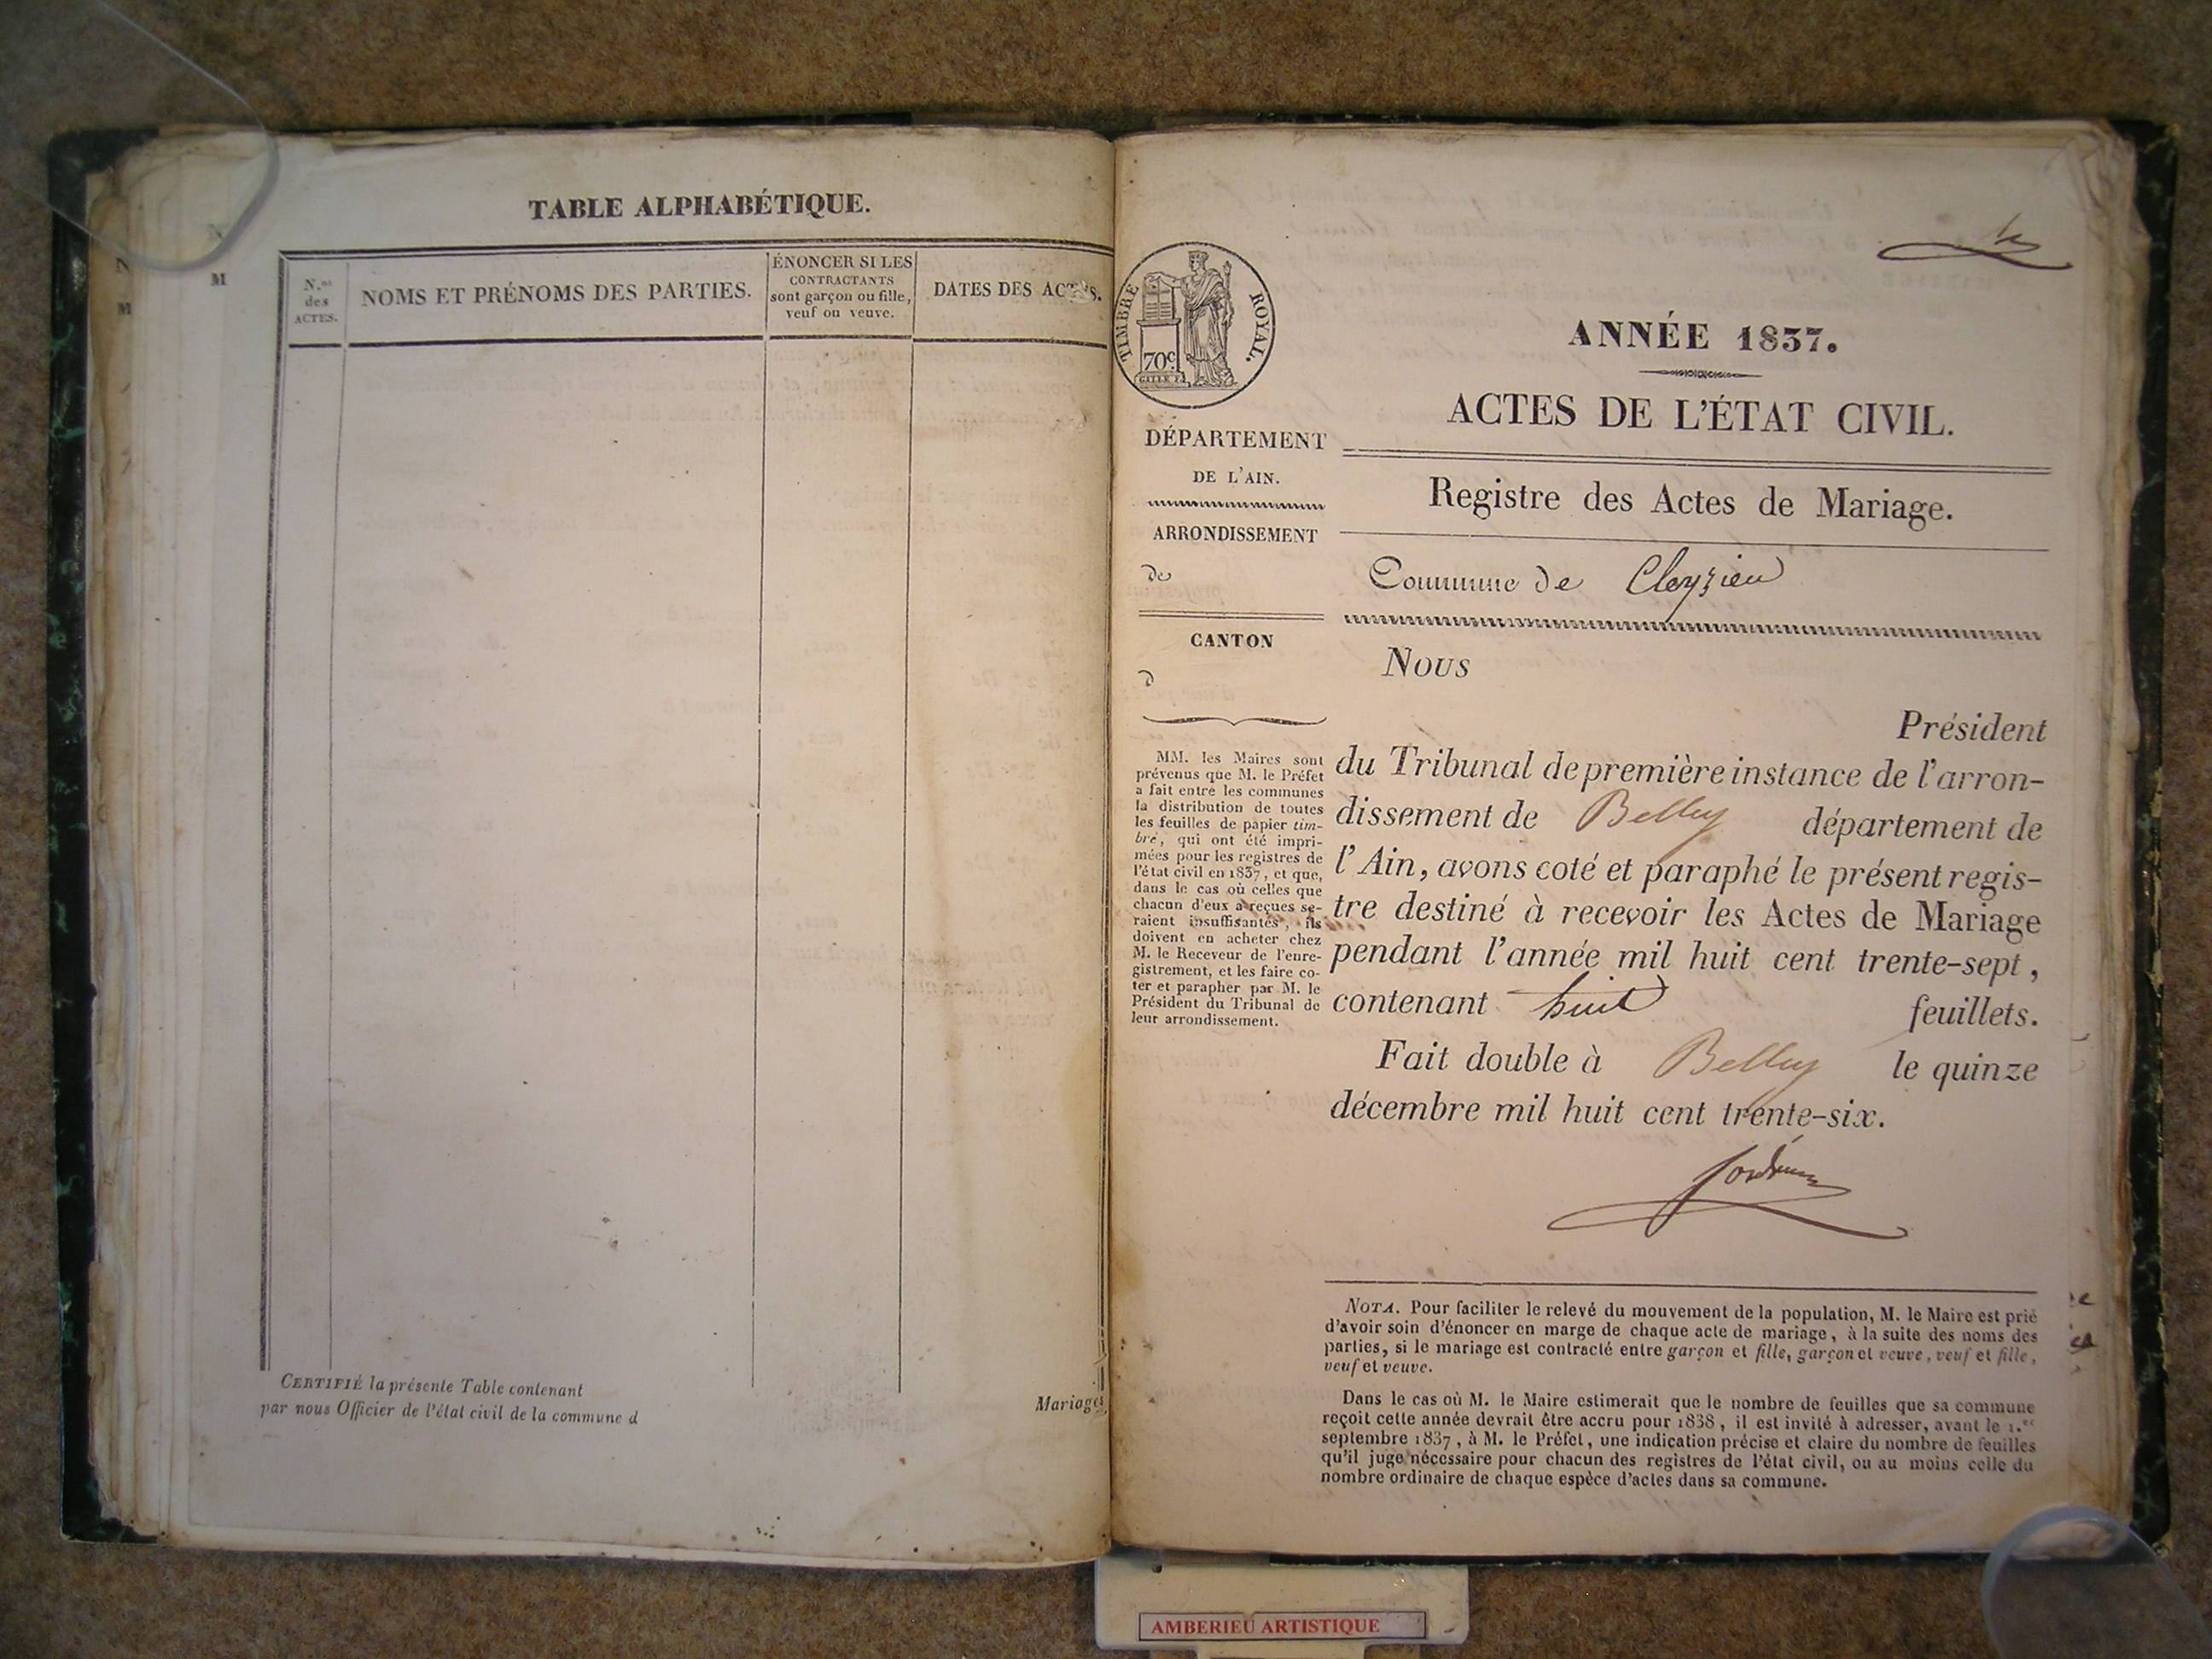 TABLE ALPHABÉTIQUE.
N.os
des
ACTES.
NOMS ET PRÉNOMS DES PARTIES.
ÉNONCER SI LES
CONTRACTANTS
sont garçon ou fille,
veuf ou veuve.
DATES DES ACTES.
M
N
M
CERTIFIÉ la présente Table contenant
par nous Officier de l'état civil de la commune d
Mariages
TIMBRE ROYAL.
70c
ANNÉE 1837.
ACTES DE L'ÉTAT CIVIL.
Registre des Actes de Mariage.
Commune de Cleyzieu
DÉPARTEMENT
DE L'AIN.
ARRONDISSEMENT
de
CANTON
d
MM. les Maires sont
prévenus que M. le Préfet
a fait entre les communes
la distribution de toutes
les feuilles de papier tim-
bré, qui ont été impri-
mées pour les registres de
l'état civil en 1837, et que,
dans le cas où celles que
chacun d'eux a reçues se-
raient insuffisantes, ils
doivent en acheter chez
M. le Receveur de l'enre-
gistrement, et les faire co-
ter et parapher par M. le
Président du Tribunal de
leur arrondissement.
Nous
Président
du Tribunal de première instance de l'arron-
dissement de Belley département de
l'Ain, avons coté et paraphé le présent regis-
tre destiné à recevoir les Actes de Mariage
pendant l'année mil huit cent trente-sept,
contenant huit feuillets.
Fait double à Belley le quinze
décembre mil huit cent trente-six.
NOTA. Pour faciliter le relevé du mouvement de la population, M. le Maire est prié
d'avoir soin d'énoncer en marge de chaque acte de mariage, à la suite des noms des
parties, si le mariage est contracté entre garçon et fille, garçon et veuve, veuf et fille,
veuf et veuve.
Dans le cas où M. le Maire estimerait que le nombre de feuilles que sa commune
reçoit cette année devrait être accru pour 1838, il est invité à adresser, avant le 1.er
septembre 1837, à M. le Préfet, une indication précise et claire du nombre de feuilles
qu'il juge nécessaire pour chacun des registres de l'état civil, ou au moins celle du
nombre ordinaire de chaque espèce d'actes dans sa commune.
AMBERIEU ARTISTIQUE